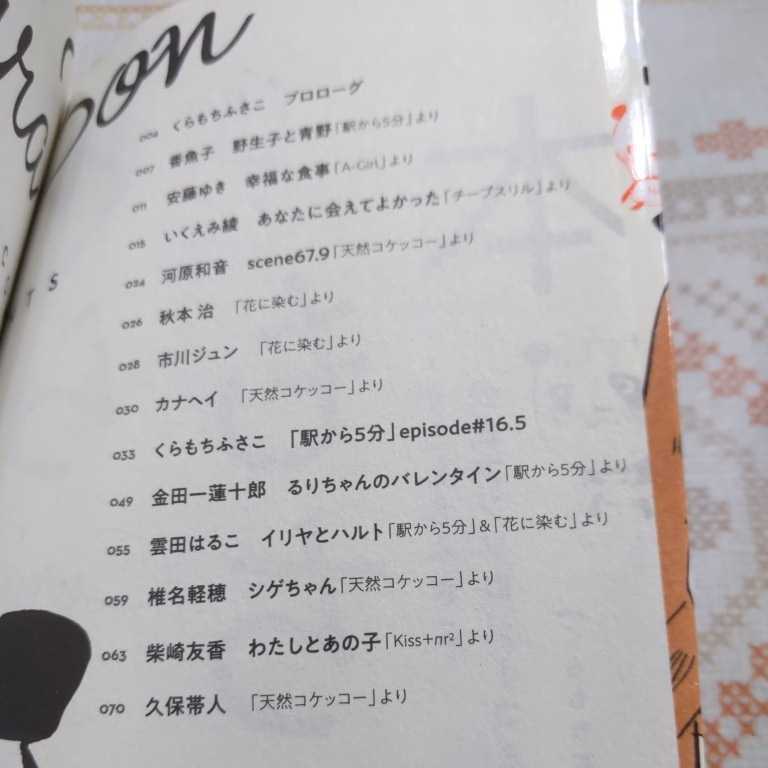 bon
C
S
T S
004 くらもちふさこ プロローグ
007 香魚子 野生子と青野「駅から5分」より
011 安藤ゆき 幸福な食事「A-Girl」より
015 いくえみ綾 あなたに会えてよかった「チープスリル」より
024 河原和音 scene67.9「天然コケッコー」より
026 秋本 治 「花に染む」より
028 市川ジュン 「花に染む」より
030 カナヘイ 「天然コケッコー」より
033 くらもちふさこ 「駅から5分」episode#16.5
049 金田一蓮十郎 るりちゃんのバレンタイン「駅から5分」より
055 雲田はるこ イリヤとハルト「駅から5分」&「花に染む」より
059 椎名軽穂 シゲちゃん「天然コケッコー」より
063 柴崎友香 わたしとあの子「Kiss+πr²」より
070 久保帯人 「天然コケッコー」より